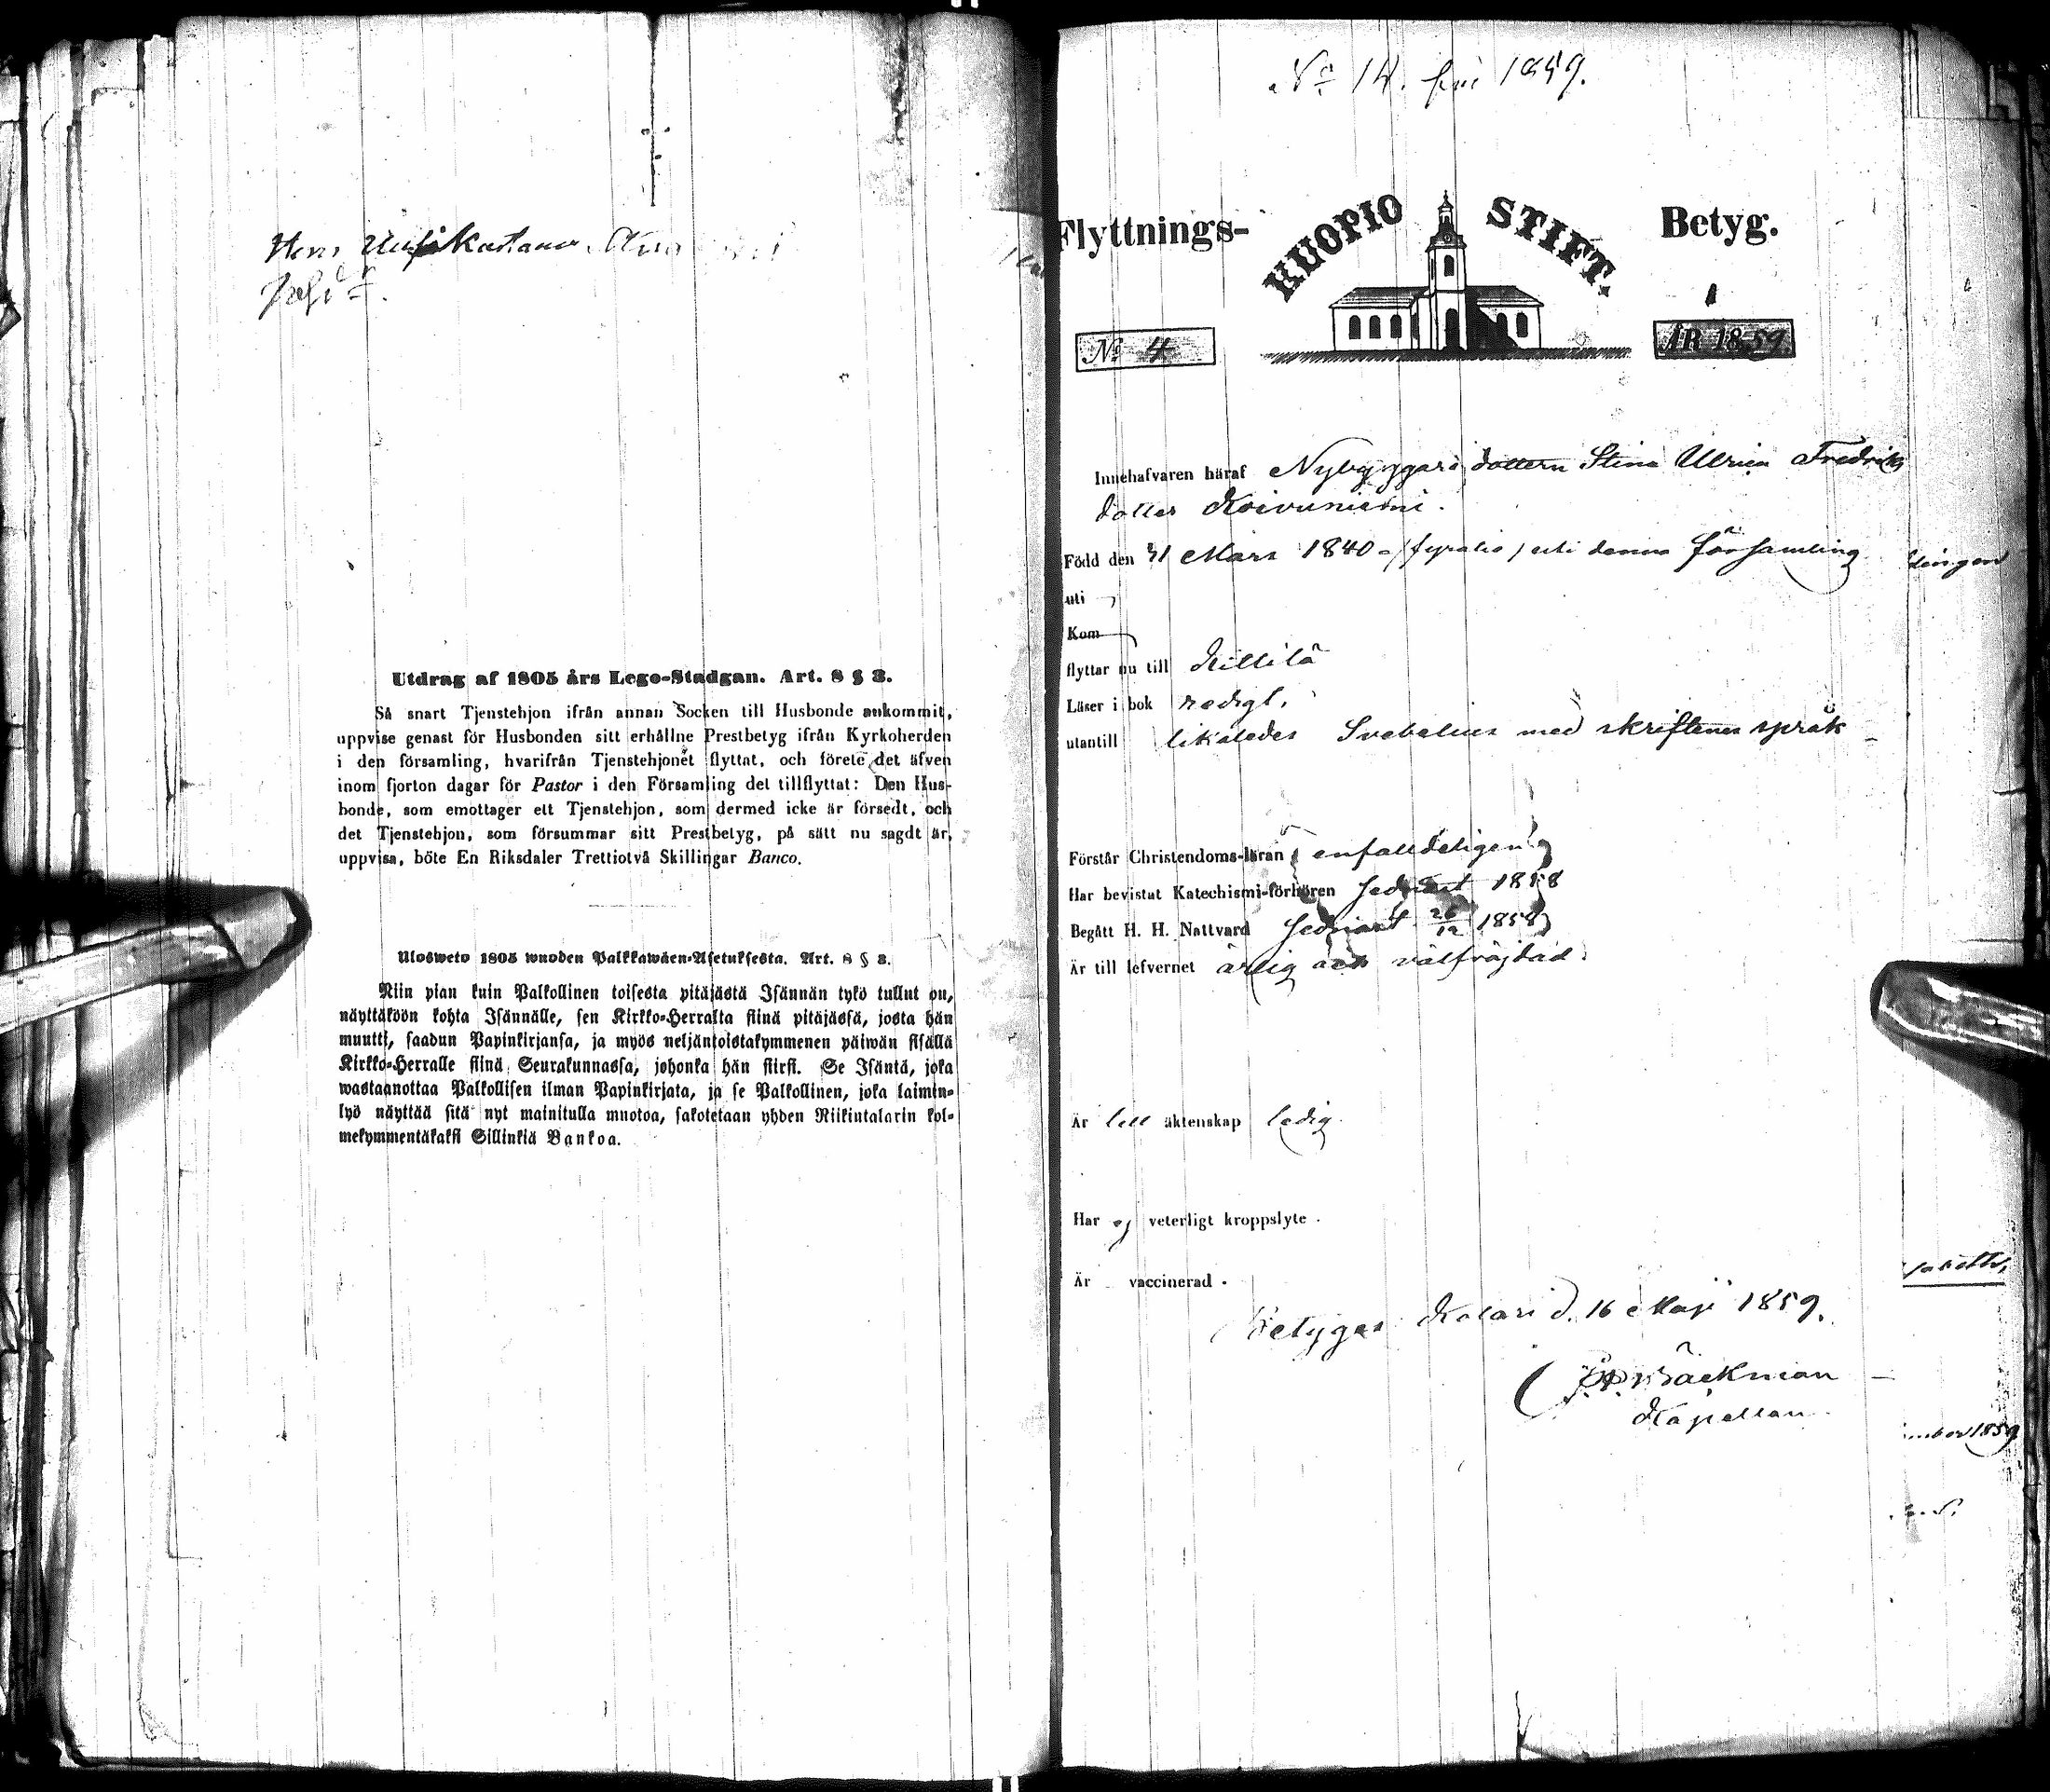 Utdrag af 1805 års Lego-Stadgan. Art. 8 § 3.
Så snart Tjenstehjon ifrån annan Socken till Husbonde ankommit,
uppvise genast för Husbonden sitt erhållne Prestbetyg ifrån Kyrkoherden
i den församling, hvarifrån Tjenstehjonet flyttat, och förete det äfven
inom fjorton dagar för Pastor i den Församling det tillflyttat: Den Hus-
bonde, som emottager ett Tjenstehjon, som dermed icke är försedt, och
det Tjenstehjon, som försummar sitt Prestbetyg, på sätt nu sagdt är,
uppvisa, böte En Riksdaler Trettiotvå Skillingar Banco.
Ulosweto 1805 wuoden Palkkawäen-Asetuksesta. Art. 8 § 3.
Niin pian kuin Palkollinen toisesta pitäjästä Isännän tykö tullut on,
näyttäköön kohta Isännälle, sen Kirkko-Herralta siinä pitäjässä, josta hän
muutti, saadun Papinkirjansa, ja myös neljäntoistakymmenen päiwän sisällä
Kirkko-Herralle siinä Seurakunnassa, johonka hän siirsi. Se Isäntä, joka
wastaanottaa Palkollisen ilman Papinkirjata, ja se Palkollinen, joka laimin-
lyö näyttää sitä nyt mainitulla muotoa, sakotetaan yhden Riikintalarin kol-
mekymmentäkaksi Sillinkiä Bankoa.
No 14. för 1859.
Flyttnings- KUOPIO STIFT. Betyg.
No 4 ÅR 1859
Innehafvaren häraf Nybyggare dottern Stina Ulrica Fredriks
dotter Koivuniemi.
Född den 31 Mars 1840 /fyratio/ uti denna församling
uti
Kom
flyttar nu till Kittilä
Läser i bok redigt,
utantill likaledes Svebelius med skriftenes språk
Förstår Christendoms-läran enfaldeligen
Har bevistat Katechismi-förhören sednast 1858
Begått H. H. Nattvard sednast 26/12 1858
Är till lefvernet ärlig och välfräjdad.
Är till äktenskap ledig.
Har ej veterligt kroppslyte.
Är vaccinerad.
Betygar Kolari d. 16 Maji 1859.
Bäckman
Kapellan.